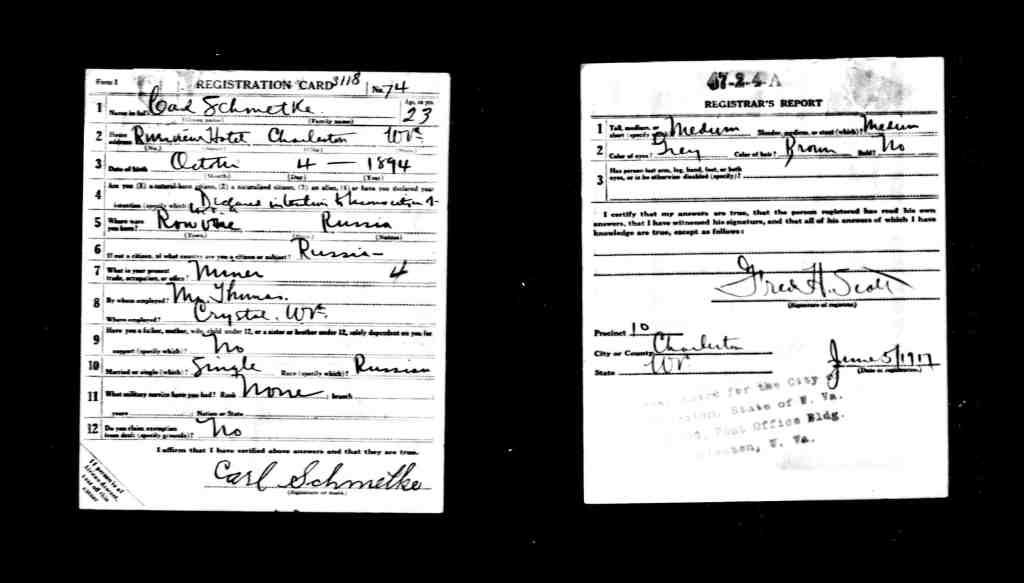 Form 1
REGISTRATION CARD 3118 No. 74
1 Name in full Carl Schmetke Age, in yrs. 23
(Given name) (Family name)
2 Home address Hotel Charleston WVa
(No.) (Street) (City) (State)
3 Date of birth October 4 — 1894
(Month) (Day) (Year)
4 Are you (1) a natural-born citizen, (2) a naturalized citizen, (3) an alien, (4) or have you declared your
intention (specify which)? Declared intention
5 Where were you born? Russia
(Town) (State) (Nation)
6 If not a citizen, of what country are you a citizen or subject? Russia—
7 What is your present trade, occupation, or office? Miner 4
8 By whom employed? Mr. Thomas.
Where employed? Crystal. WVa.
9 Have you a father, mother, wife, child under 12, or a sister or brother under 12, solely dependent on you for
support (specify which)? No
10 Married or single (which)? Single Race (specify which)? Russian
11 What military service have you had? Rank None ; branch
years ; Nation or State
12 Do you claim exemption from draft (specify grounds)? No
I affirm that I have verified above answers and that they are true.
Carl Schmetke
(Signature or mark.)
If person is of African descent, tear off this corner
47-2-4-A
REGISTRAR'S REPORT
1 Tall, medium, or short (specify which)? Medium Slender, medium, or stout (which)? Medium
2 Color of eyes? Grey Color of hair? Brown Bald? No
3 Has person lost arm, leg, hand, foot, or both eyes, or is he otherwise disabled (specify)?
I certify that my answers are true, that the person registered has read his own
answers, that I have witnessed his signature, and that all of his answers of which I have
knowledge are true, except as follows:
Fred H. Scott
(Signature of registrar)
Precinct 10
City or County Charleston
State WV
June 5/1917
(Date of registration)
for the City of
State of W. Va.
Post Office Bldg.
W. Va.